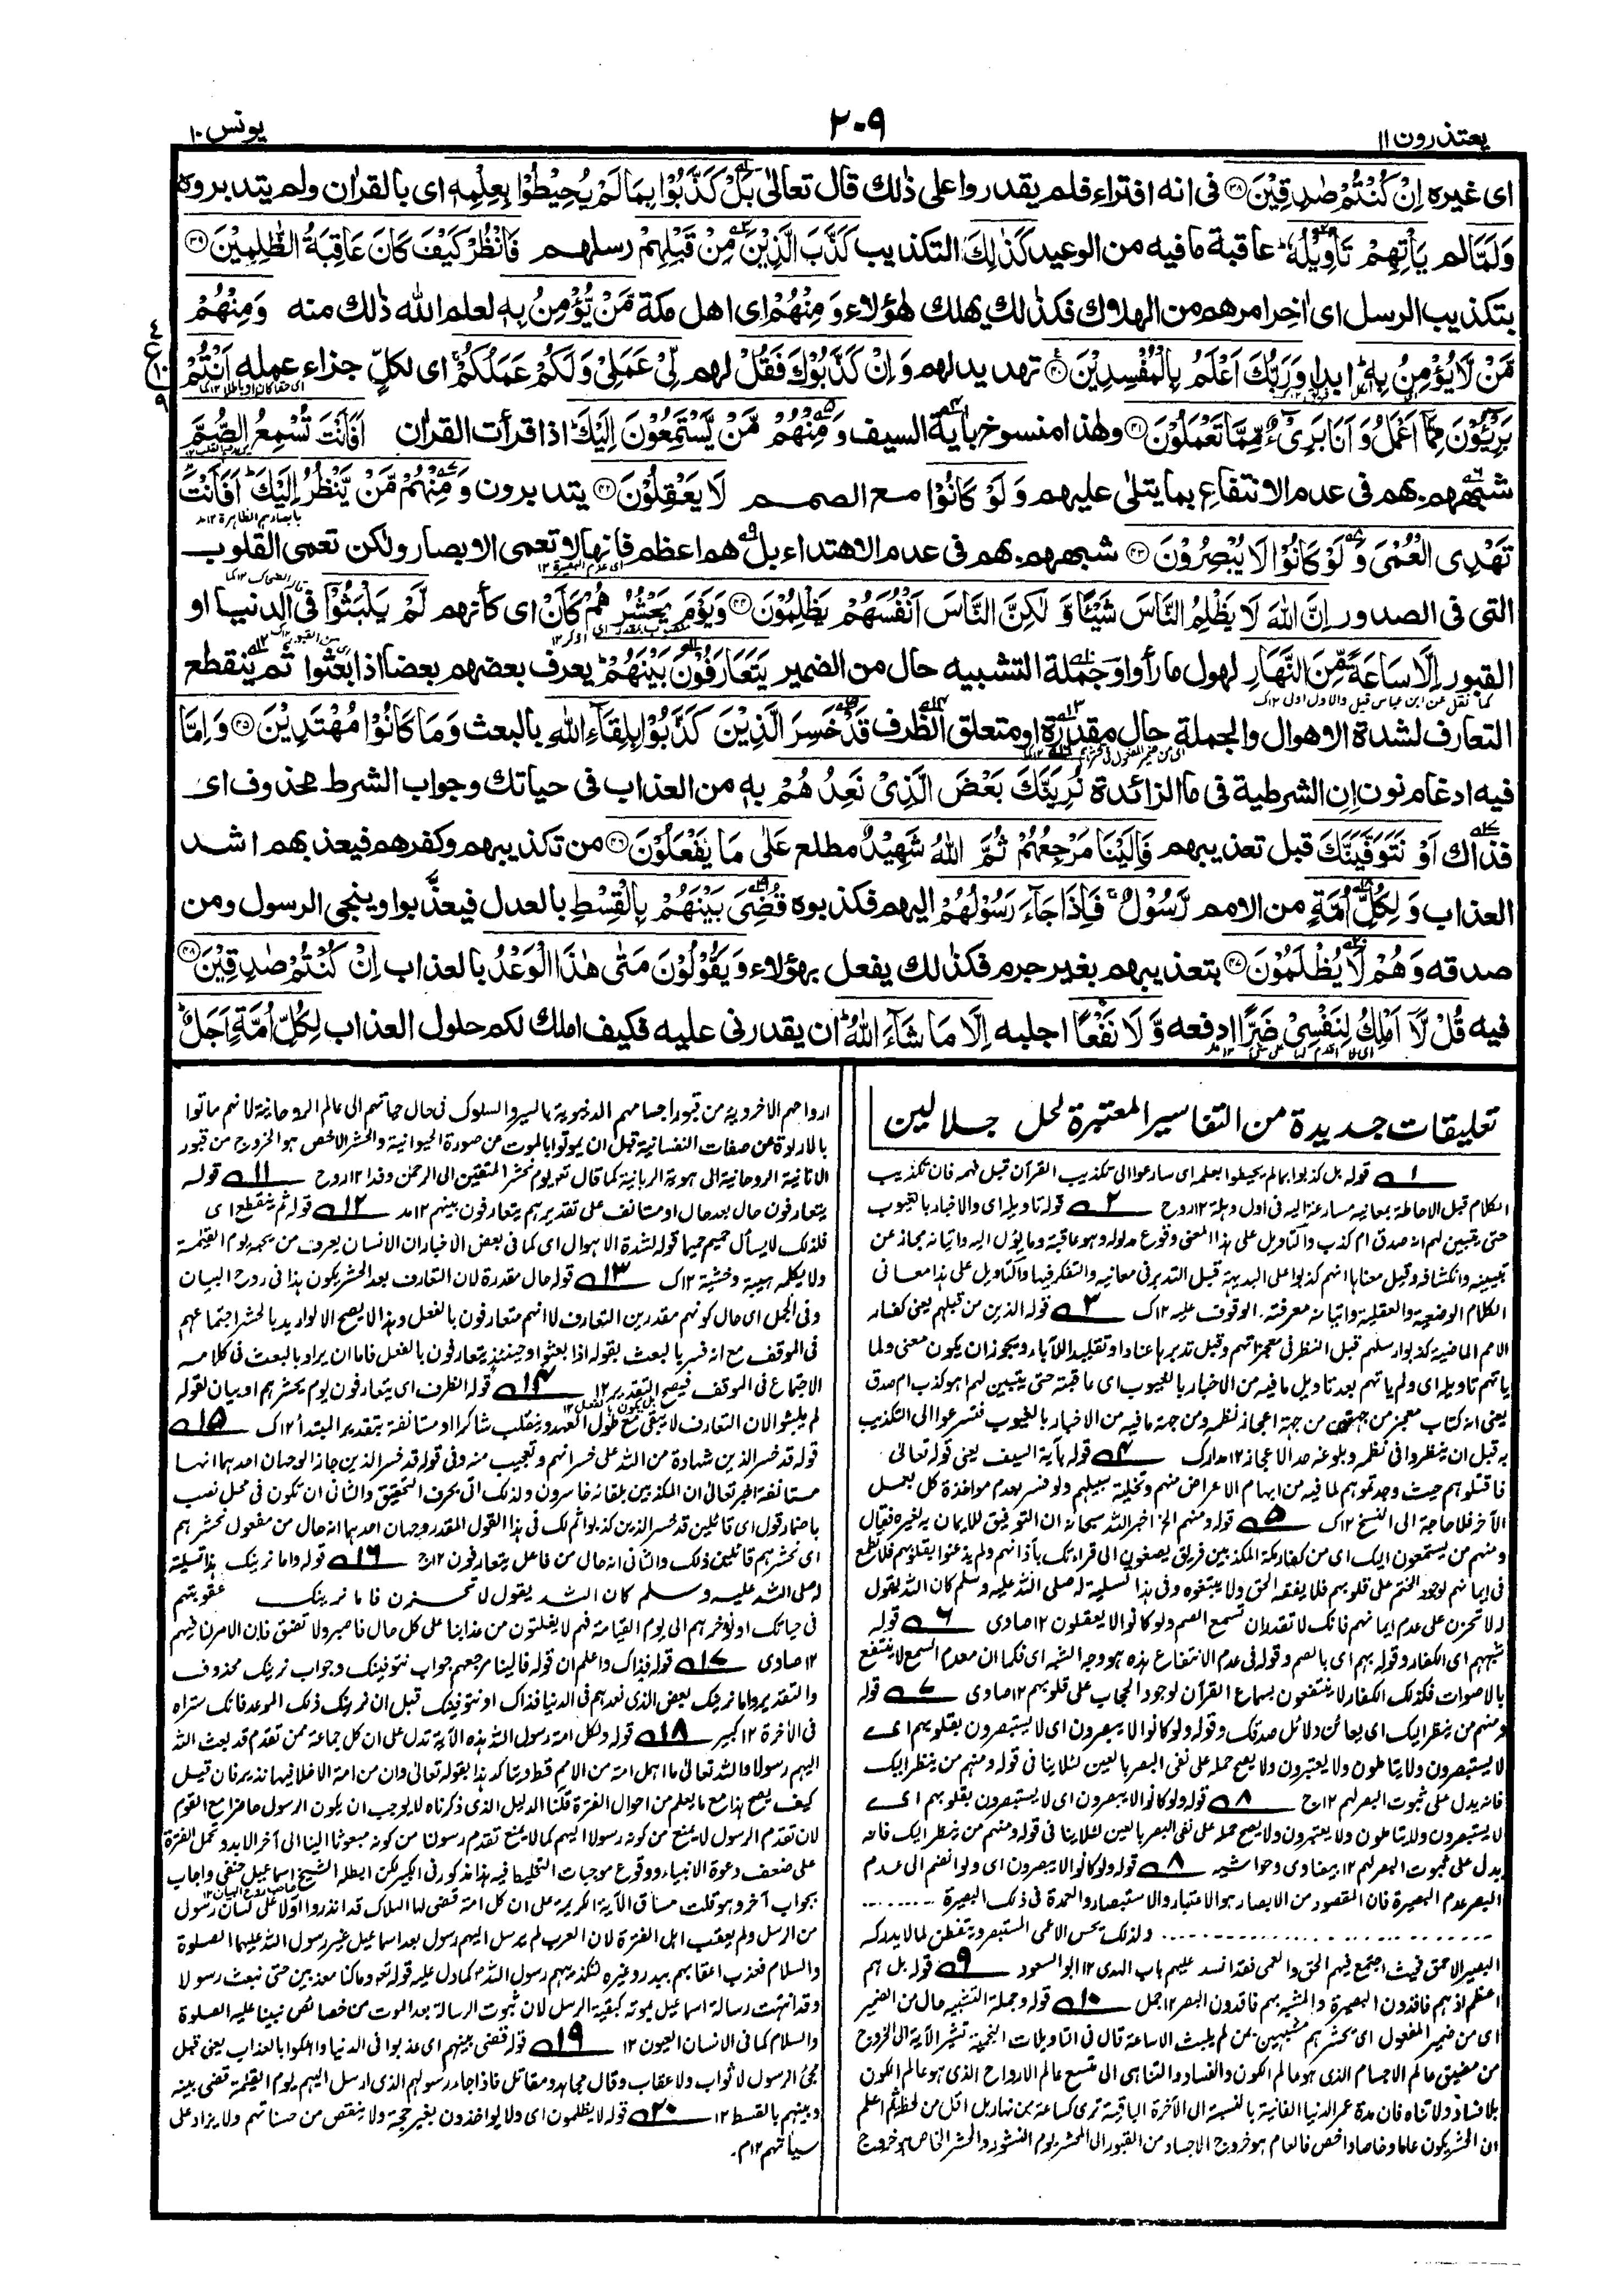 يعتذرون ١١
٢٠٩
يونس ١٠
اى غيره اِنْ كُنْتُمْ صٰدِقِيْنَ ۝٣٨ فى انه افتراء فلم يقدروا على ذٰلك قال تعالىٰ بَلْ كَذَّبُوْا بِمَا لَمْ يُحِيْطُوْا بِعِلْمِهٖ اى بالقراٰن ولم يتدبروه
وَلَمَّا لم يَاْتِهِمْ تَاْوِيْلُهٗ ؕ عاقبة ما فيه من الوعيد كَذٰلِكَ التكذيب كَذَّبَ الَّذِيْنَ مِنْ قَبْلِهِمْ رسلهم فَانْظُرْ كَيْفَ كَانَ عَاقِبَةُ الظّٰلِمِيْنَ ۝٣٩
بتكذيب الرسل اى اٰخر امرهم من الهلاك فكذٰلك يهلك هٰؤلاء وَمِنْهُمْ اى اهل مكة مَّنْ يُّؤْمِنُ بِهٖ لعلم الله ذٰلك منه وَمِنْهُمْ
مَّنْ لَّا يُؤْمِنُ بِهٖ ؕ ابدا وَرَبُّكَ اَعْلَمُ بِالْمُفْسِدِيْنَ ۝٤٠ تهديد لهم وَاِنْ كَذَّبُوْكَ فَقُلْ لهم لِّيْ عَمَلِيْ وَلَكُمْ عَمَلُكُمْ ۚ اى لكلٍّ جزاء عمله اَنْتُمْ
بَرِيْٓـُٔوْنَ مِمَّآ اَعْمَلُ وَاَنَا بَرِيْٓءٌ مِّمَّا تَعْمَلُوْنَ ۝٤١ وهٰذا منسوخ باٰية السيف وَمِنْهُمْ مَّنْ يَّسْتَمِعُوْنَ اِلَيْكَ ؕ اذا قرأت القراٰن اَفَاَنْتَ تُسْمِعُ الصُّمَّ
شبههم بهم فى عدم الانتفاع بما يتلىٰ عليهم وَلَوْ كَانُوْا مع الصمم لَا يَعْقِلُوْنَ ۝٤٢ يتدبرون وَمِنْهُمْ مَّنْ يَّنْظُرُ اِلَيْكَ ؕ اَفَاَنْتَ
تَهْدِى الْعُمْىَ وَلَوْ كَانُوْا لَا يُبْصِرُوْنَ ۝٤٣ شبههم بهم فى عدم الاهتداء بل هم اعظم فانها لا تعمى الابصار ولكن تعمى القلوب
التى فى الصدور اِنَّ اللّٰهَ لَا يَظْلِمُ النَّاسَ شَيْئًا وَّلٰكِنَّ النَّاسَ اَنْفُسَهُمْ يَظْلِمُوْنَ ۝٤٤ وَيَوْمَ يَحْشُرُهُمْ كَاَنْ اى كأنهم لَّمْ يَلْبَثُوْٓا فى الدنيا او
القبور اِلَّا سَاعَةً مِّنَ النَّهَارِ لهول ما رأوا وجملة التشبيه حال من الضمير يَتَعَارَفُوْنَ بَيْنَهُمْ ؕ يعرف بعضهم بعضا اذا بعثوا ثم ينقطع
التعارف لشدة الاهوال والجملة حال مقدرة او متعلق الظرف قَدْ خَسِرَ الَّذِيْنَ كَذَّبُوْا بِلِقَآءِ اللّٰهِ بالبعث وَمَا كَانُوْا مُهْتَدِيْنَ ۝٤٥ وَاِمَّا
فيه ادغام نون اِن الشرطية فى ما الزائدة نُرِيَنَّكَ بَعْضَ الَّذِيْ نَعِدُهُمْ به من العذاب فى حياتك وجواب الشرط محذوف اى
فذاك اَوْ نَتَوَفَّيَنَّكَ قبل تعذيبهم فَاِلَيْنَا مَرْجِعُهُمْ ثُمَّ اللّٰهُ شَهِيْدٌ مطلع عَلٰى مَا يَفْعَلُوْنَ ۝٤٦ من تكذيبهم وكفرهم فيعذبهم اشد
العذاب وَلِكُلِّ اُمَّةٍ من الامم رَّسُوْلٌ ۚ فَاِذَا جَآءَ رَسُوْلُهُمْ اليهم فكذبوه قُضِيَ بَيْنَهُمْ بِالْقِسْطِ بالعدل فيعذَّبوا وينجى الرسول ومن
صدقه وَهُمْ لَا يُظْلَمُوْنَ ۝٤٧ بتعذيبهم بغير جرم فكذٰلك يفعل بهؤلاء وَيَقُوْلُوْنَ مَتٰى هٰذَا الْوَعْدُ بالعذاب اِنْ كُنْتُمْ صٰدِقِيْنَ ۝٤٨
فيه قُلْ لَّآ اَمْلِكُ لِنَفْسِيْ ضَرًّا ادفعه وَّلَا نَفْعًا اجلبه اِلَّا مَا شَآءَ اللّٰهُ ؕ ان يقدرنى عليه فكيف املك لكم حلول العذاب لِكُلِّ اُمَّةٍ اَجَلٌ ؕ
تعليقات جديدة من التفاسير المعتبرة لحل جلالين
١ قوله بل كذبوا بما لم يحيطوا بعلمه اى سارعوا الى تكذيب القرآن قبل فهمه فان تكذيب
الكلام قبل الاحاطة بمعانيه مسارعة اليه فى اول وهلة ١٢ روح ٢ قوله تاويله اى والاخبار بالغيوب
حتى يتبين لهم انه صدق ام كذب والتاويل على هذا المعنى وقوع مدلوله وهو عاقبته وما يؤل اليه واتيانه مجاز عن
تبيينه وانكشافه وقيل معناها انهم كذبوا على البديهة قبل التدبر فى معانيه والتفكر فيها والتاويل على هذا معانى
الكلام الوضعية والعقلية واتيانه معرفته. الوقوف عليه ١٢ك ٣ قوله الذين من قبلهم يعنى كفار
الامم الماضية كذبوا رسلهم قبل النظر فى معجزاتهم وقبل تدبرها عنادا وتقليد اللآباء ويجوز ان يكون معنى ولما
ياتهم تاويله اى ولم ياتهم بعد تاويل ما فيه من الاخبار بالغيوب اى عاقبته حتى يتبين لهم اهو كذب ام صدق
يعنى انه كتاب معجز من جهتين من جهة اعجاز نظمه ومن جهة ما فيه من الاخبار بالغيوب فتسرعوا الى التكذيب
به قبل ان ينظروا فى نظمه وبلوغه حد الاعجاز ١٢ مدارك ٤ قوله بآية السيف يعنى قوله تعالى
فاقتلوهم حيث وجدتموهم لما فيه من ايهام الاعراض منهم وتخلية سبيلهم ولو فسر بعدم مواخذة كل بعمل
الآخر فلا حاجة الى النسخ ١٢ك ٥ قوله ومنهم الخ اخبر الله سبحانه ان التوفيق للايمان به لغيره فقال
ومنهم من يستمعون اليك اى من كفار مكة المكذبين فريق يصغون الى قراءتك بآذانهم ولم يذعنوا بقلوبهم فلا تطمع
فى ايمانهم لوجود الختم على قلوبهم فلا يفقه الحق ولا يتبغوه وفى هذا تسلية له صلى الله عليه وسلم كان الله يقول
له لا تحزن على عدم ايمانهم فانك لا تقدر ان تسمع الصم ولو كانوا لا يعقلون ١٢ صاوى ٦ قوله
شبههم اى الكفار وقوله بهم اى بالصم وقوله فى عدم الانتفاع بهذه هو وجه الشبه اى فكما ان معدم السمع لا ينتفع
بالاصوات فكذلك الكفار لا ينتفعون بسماع القرآن لوجود الحجاب على قلوبهم ١٢ صاوى ٧ قوله
ومنهم من ينظر اليك اى يعائن دلائل صدقك وقوله ولو كانوا لا يبصرون اى لا يستبصرون بقلوبهم اى
لا يستبصرون ولا يتاملون ولا يعتبرون ولا يصح حمله على نفى البصر بالعين لئلا ينافى قوله ومنهم من ينظر اليك
فانه يدل على ثبوت البصر لهم ١٢ج ٨ قوله ولو كانوا لا يبصرون اى لا يستبصرون بقلوبهم اى
لا يستبصرون ولا يتاملون ولا يعتبرون ولا يصح حمله على نفى البصر بالعين لئلا ينافى قوله ومنهم من ينظر اليك فانه
يدل على ثبوت البصر لهم ١٢ بيضاوى وحواشيه ٨ قوله ولو كانوا لا يبصرون اى ولو انضم الى عدم
البصر عدم البصيرة فان المقصود من الابصار هو الاعتبار والاستبصار والعمدة فى ذلك البصيرة ........
........ ولذلك يحس الاعمى المستبصر ويتفطن لما لا يدركه
البصير الاحمق فحيث اجتمع فيهم الحق والعمى فقد انسد عليهم باب الهدى ١٢ ابو السعود ٩ قوله بل هم
اعظم اذ هم فاقدون البصيرة والمشبه بهم فاقدون البصر ١٢ جمل ١٠ قوله وجملة التشبيه حال من الضمير
اى من ضمير المفعول اى يحشرهم مشبهين بمن لم يلبث الا ساعة قال فى التاويلات النجمية تشير الآية الى الخروج
من مضيق عالم الاجسام الذى هو عالم الكون والفساد والتناهى الى متسع عالم الارواح الذى هو عالم الكون
بلا فساد ولا تناه فان مدة عمر الدنيا الفانية بالنسبة الى الآخرة الباقية ترى كساعة من نهار بل اقل من لحظة ثم اعلم
ان الحشر يكون عاما وخاصا واخص فالعام هو خروج الاجساد من القبور الى المحشر يوم النشور والحشر الخاص هو خروج
ارواحهم الاخروية من قبور اجسامهم الدنيوية بالسير والسلوك فى حال حياتهم الى عالم الروحانية لانهم ماتوا
بالارادة عن صفات النفسانية قبل ان يموتوا بالموت عن صورة الحيوانية والحشر الاخص هو الخروج من قبور
الانانية الروحانية الى هوية الربانية كما قال تع يوم نحشر المتقين الى الرحمن وفدا ١٢ روح ١١ قوله
يتعارفون حال بعد حال او مستانف على تقدير هم يتعارفون بينهم ١٢ مد ١٢ قوله ثم ينقطع اى
فلذلك لا يسأل حميم حميما قوله لشدة الاهوال اى كما فى بعض الاخبار ان الانسان يعرف من بجنبه يوم القيٰمة
ولا يكلمه هيبة وخشية ١٢ك ١٣ قوله حال مقدرة لان التعارف بعد الحشر يكون هذا فى روح البيان
وفى الجمل اى حال كونهم مقدرين التعارف لا انهم متعارفون بالفعل وهذا لا يصح الا لو اريد بالحشر اجتماعهم
فى الموقف مع انه فسر بالبعث بقوله اذا بعثوا وحينئذ يتعارفون بالفعل فاما ان يراد بالبعث فى كلامه
الاجتماع فى الموقف فيصح التقدير ١٢ ١٤ قوله الظرف اى يتعارفون يوم يحشرهم او بيان لقوله
لم يلبثوا لان التعارف لا يبقى مع طول العهد وينقلب شاكرا او مستانفة بتقدير المبتدأ ١٢ك ١٥
قوله قد خسر الذين شهادة من الله على خسرانهم وتعجيب منه وفى قوله قد خسر الذين جاز الوجهان احدهما انها
مستانفة اخبر تعالى ان المكذبين بلقائه خاسرون ولذلك اتى بحرف التحقيق والثانى ان تكون فى محل نصب
باضمار قول اى قائلين قد خسر الذين كذبوا ثم لك فى هذا القول المقدر وجهان احدهما انه حال من مفعول نحشرهم
اى نحشرهم قائلين ذلك والثانى انه حال من فاعل يتعارفون ١٢ج ١٦ قوله واما نرينك هذا تسلية
له صلى الله عليه وسلم كان الله يقول لا تحزن فاما نرينك عقوبتهم
فى حياتك او نؤخرهم الى يوم القيامة فهم لا يفلتون من عذابنا على كل حال فاصبر ولا تضق فان الامر لنا فيهم
١٢ صاوى ١٧ قوله فذاك واعلم ان قوله فالينا مرجعهم جواب نتوفينك وجواب نرينك محذوف
والتقدير واما نرينك بعض الذى نعدهم فى الدنيا فذاك او نتوفينك قبل ان نرينك ذلك الموعد فانك ستراه
فى الآخرة ١٢ كبير ١٨ قوله ولكل امة رسول الله هذه الآية تدل على ان كل جماعة ممن تقدم قد بعث الله
اليهم رسولا والله تعالى ما اهمل امة من الامم قط ويتاكد هذا بقوله تعالى وان من امة الا خلا فيها نذير فان قيل
كيف يصح هذا مع ما يعلم من احوال الفترة قلنا الدليل الذى ذكرناه لا يوجب ان يكون الرسول حاضرا مع القوم
لان تقدم الرسول لا يمنع من كونه رسولا اليهم كما لا يمنع تقدم رسولنا من كونه مبعوثا الينا الى آخر الابد وتحمل الفترة
على ضعف دعوة الانبياء ووقوع موجبات التخليط فيه هذا مذكور فى الكبير لكن ابطله الشيخ اسماعيل حنفى واجاب
بجواب آخر وهو قلت مساق الآية الكريمة على ان كل امة قضى لها الهلاك قد انذروا اولا على لسان رسول
من الرسل ولم يعقب اهل الفترة لان العرب لم يرسل اليهم رسول بعد اسماعيل غير رسول الله عليهما الصلوة
والسلام فعذب اعقابهم ببدر وغيره لتكذيبهم رسول الله كما دل عليه قوله تع وما كنا معذبين حتى نبعث رسولا
وقد انتهت رسالة اسماعيل بموته كبقية الرسل لان ثبوت الرسالة بعد الموت من خصائص نبينا عليه الصلوة
والسلام كما فى الانسان العيون ١٢ ١٩ قوله قضى بينهم اى عذبوا فى الدنيا واهلكوا بالعذاب يعنى قبل
مجئ الرسول لا ثواب ولا عقاب وقال مجاهد ومقاتل فاذا جاء رسولهم الذى ارسل اليهم يوم القيٰمة قضى بينه
وبينهم بالقسط ١٢ ٢٠ قوله لا يظلمون اى ولا يواخذون بغير حجة ولا ينقص من حسناتهم ولا يزاد على
سيأتهم ١٢م.